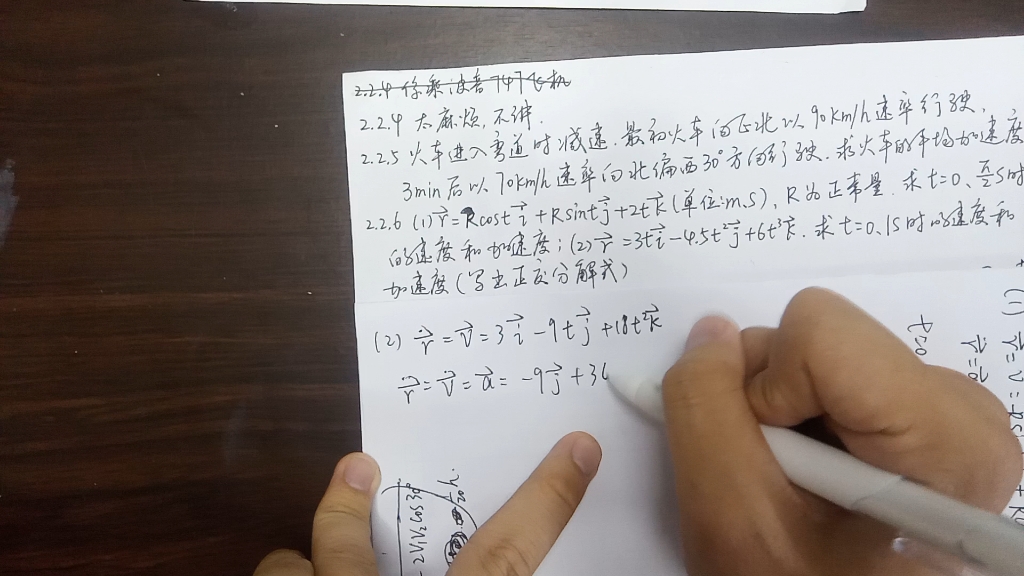 2.2.4 徐乘波音747飞机
2.2.4 太麻烦,不讲.
2.2.5 火车进入弯道时减速.最初火车向正北以90km/h速率行驶,
3min后以70km/h速率向北偏西30°方向行驶.求火车的平均加速度
2.2.6 (1) r⃗=Rcosti⃗+Rsintj⃗+2tk⃗(单位:m.s),R为正常量.求t=0、π/2s时
的速度和加速度;(2)r⃗=3ti⃗-4.5t²j⃗+6t³k⃗.求t=0、1s时的速度和
加速度(写出正交分解式)
(2) r⃗=v⃗=3i⃗-9tj⃗+18t²k⃗
r⃗=v⃗=a⃗=-9j⃗+36
(1)
t=0
-2V1V2cos30